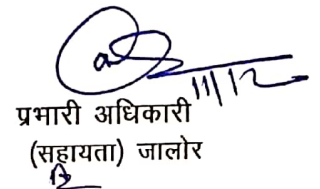 11/12
प्रभारी अधिकारी
(सहायता) जालोर